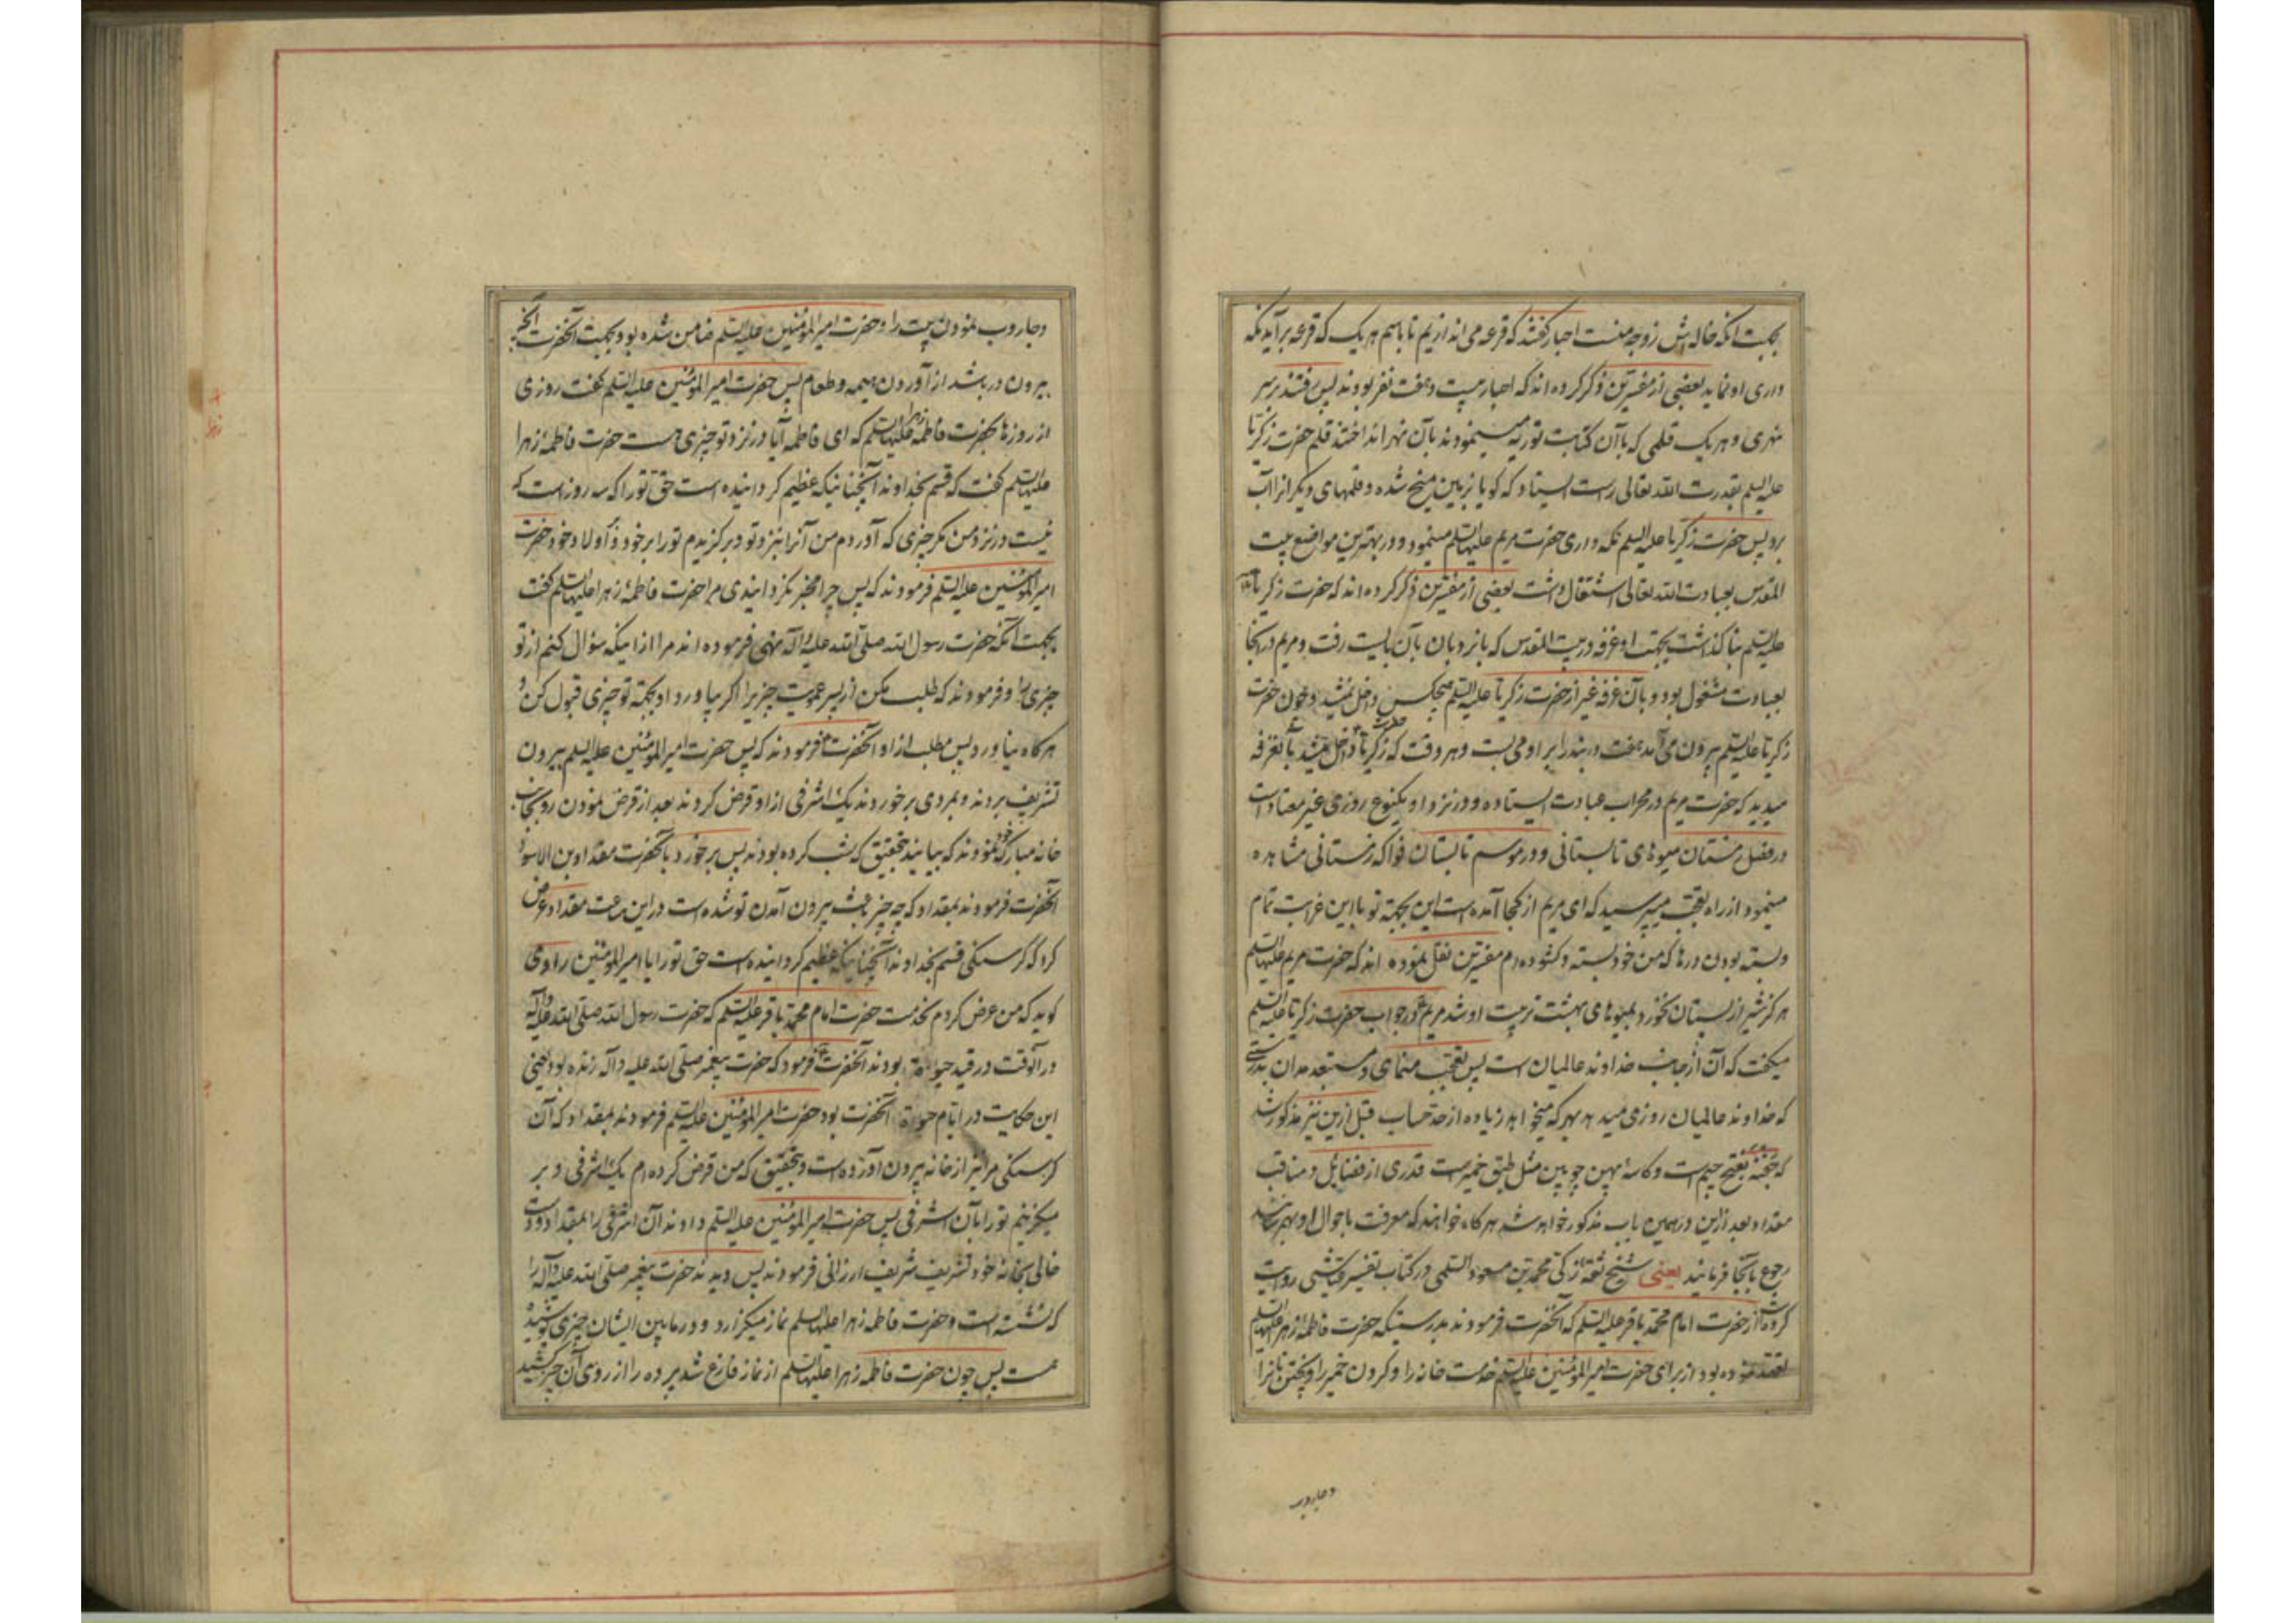 بجهت آنکه خاله اش زوجه منست احبار گفتند که قرعه می اندازیم تا باسم هر یک که قرعه برآید نکه
داری او نماید بعضی از مفسرین ذکر کرده اند که احبار بیست و هفت نفر بودند پس رفتند بر سر
نهری و هر یک قلمی که با آن کتابت توریه مینمودند بآن نهر انداختند قلم حضرت زکریا
علیه السلم بقدرت الله تعالی راست ایستاد که کویا بر زمین میخ شده و قلمهای دیکرانرا آب
برد پس حضرت زکریا علیه السلم نکه داری حضرت مریم علیها السلم مینمود و در بهترین مواضع بیت
المقدس بعبادت الله تعالی اشتغال داشت بعضی از مفسرین ذکر کرده اند که حضرت زکریا
علیه السلم بنا کذاشت بجهت او غرفه در بیت المقدس که با نردبان بآن بایست رفت و مریم در آنجا
بعبادت مشغول بود و بآن غرفه غیر از حضرت زکریا علیه السلم هیچکس داخل نمیشد و چون حضرت
زکریا علیه السلم بیرون می آمد هفت در بند را بر او می بست و هر وقت که حضرت زکریا داخل میشد بآنغرفه
میدید که حضرت مریم در محراب عبادت ایستاده و در نزد او یکنوع روزی غیر معتاد است
در فصل زمستان میوهای تابستانی و در موسم تابستان فواکه زمستانی مشاهده
مینمود از راه تعجب میپرسید که ای مریم از کجا آمده است این بجهة تو با این غرابت تمام
و بسته بودن درها که من خود بسته و کشوده ام مفسرین نقل نموده اند که حضرت مریم علیها السلم
هرکز شیر از پستان نخورد بمیوهای بهشت تربیت او شد مریم در جواب حضرت زکریا علیه السلم
میکفت که آن از جانب خداوند عالمیان است پس تعجب منمای و مستبعد مدان بدرستی
که خداوند عالمیان روزی میدهد بهر که میخواهد زیاده از حد حساب قبل ازین نیز مذکور شد
که جفنه بفتح جیم است و کاسهٔ پهن چوبین مثل طبق خمیرست قدری از فضایل و مناقب
مقداد بعد ازین در همین باب مذکور خواهد شد هر کاه خواهند که معرفت باحوال او بهم رسانند
رجوع بآنجا فرمایند یعنی شیخ ثقه زکی محمد بن مسعود السلمی در کتاب تفسیر عیاشی روایت
کرده از حضرت امام محمد باقر علیه السلم که آنحضرت فرمودند بدرستیکه حضرت فاطمه زهرا علیها السلم
تعهد نموده بود از برای حضرت امیر المؤمنین علیه السلم خدمت خانه را و کردن خمیر را و پختن نانرا
و جاروب
و جاروب نمودن بیت را و حضرت امیر المؤمنین علیه السلم ضامن شده بود بجهت آنحضرت آنچه
بیرون در باشد از آوردن هیمه و طعام پس حضرت امیر المؤمنین علیه السلم کفت روزی
از روزها بحضرت فاطمه زهرا علیها السلم که ای فاطمه آیا در نزد تو چیزی هست حضرت فاطمه زهرا
علیها السلم کفت که قسم بخداوند آنچنانیکه عظیم کردانیده است حق تو را که سه روز است که
نیست در نزد من مکر چیزی که آوردم من آنرا بنزد تو و برکزیدم تو را بر خود و اولاد خود حضرت
امیر المؤمنین علیه السلم فرمودند که پس چرا مخبر نکردانیدی مرا حضرت فاطمهٔ زهرا علیها السلم کفت
بجهت آنکه حضرت رسول الله صلی الله علیه و آله نهی فرموده اند مرا از اینکه سؤال کنم از تو
چیزی را و فرمودند که طلب مکن از پسر عمویت چیزیرا اکر بیاورد او بجهة تو چیزی قبول کن و
هرکاه نیاورد پس مطلب از او آنحضرت فرمودند که پس حضرت امیر المؤمنین علیه السلم بیرون
تشریف بردند و بمردی برخوردند یک اشرفی از او قرض کردند بعد از قرض نمودن رو بجانب
خانه مبارکه خود نمودند که بیایند بتحقیق که شب کرده بودند پس برخورد بآنحضرت مقداد بن الاسود
آنحضرت فرمودند بمقداد که چه چیز باعث بیرون آمدن تو شده است در این ساعت مقداد عرض
کرد که کرسنکی قسم بخداوند آنچنانیکه عظیم کردانیده است حق تو را یا امیر المؤمنین راوی
کوید که من عرض کردم بخدمت حضرت امام محمد باقر علیه السلم که حضرت رسول الله صلی الله علیه و آله
در آنوقت در قید حیوة بودند آنحضرت فرمود که حضرت پیغمبر صلی الله علیه و آله زنده بود یعنی
این حکایت در ایام حیوة آنحضرت بود حضرت امیر المؤمنین علیه السلم فرمودند بمقداد که آن
کرسنکی مرا نیز از خانه بیرون آورده است و بتحقیق که من قرض کرده ام یک اشرفی و بر
میکزینم تو را بآن اشرفی پس حضرت امیر المؤمنین علیه السلم دادند آن اشرفی را بمقداد و دست
خالی بخانه خود تشریف شریف ارزانی فرمودند پس دیدند حضرت پیغمبر صلی الله علیه و آله را
که نشسته است و حضرت فاطمه زهرا علیها السلم نماز میکزارد و در مابین ایشان چیزی پوشیده
است پس چون حضرت فاطمه زهرا علیها السلم از نماز فارغ شد پرده را از روی آن چیز کشید